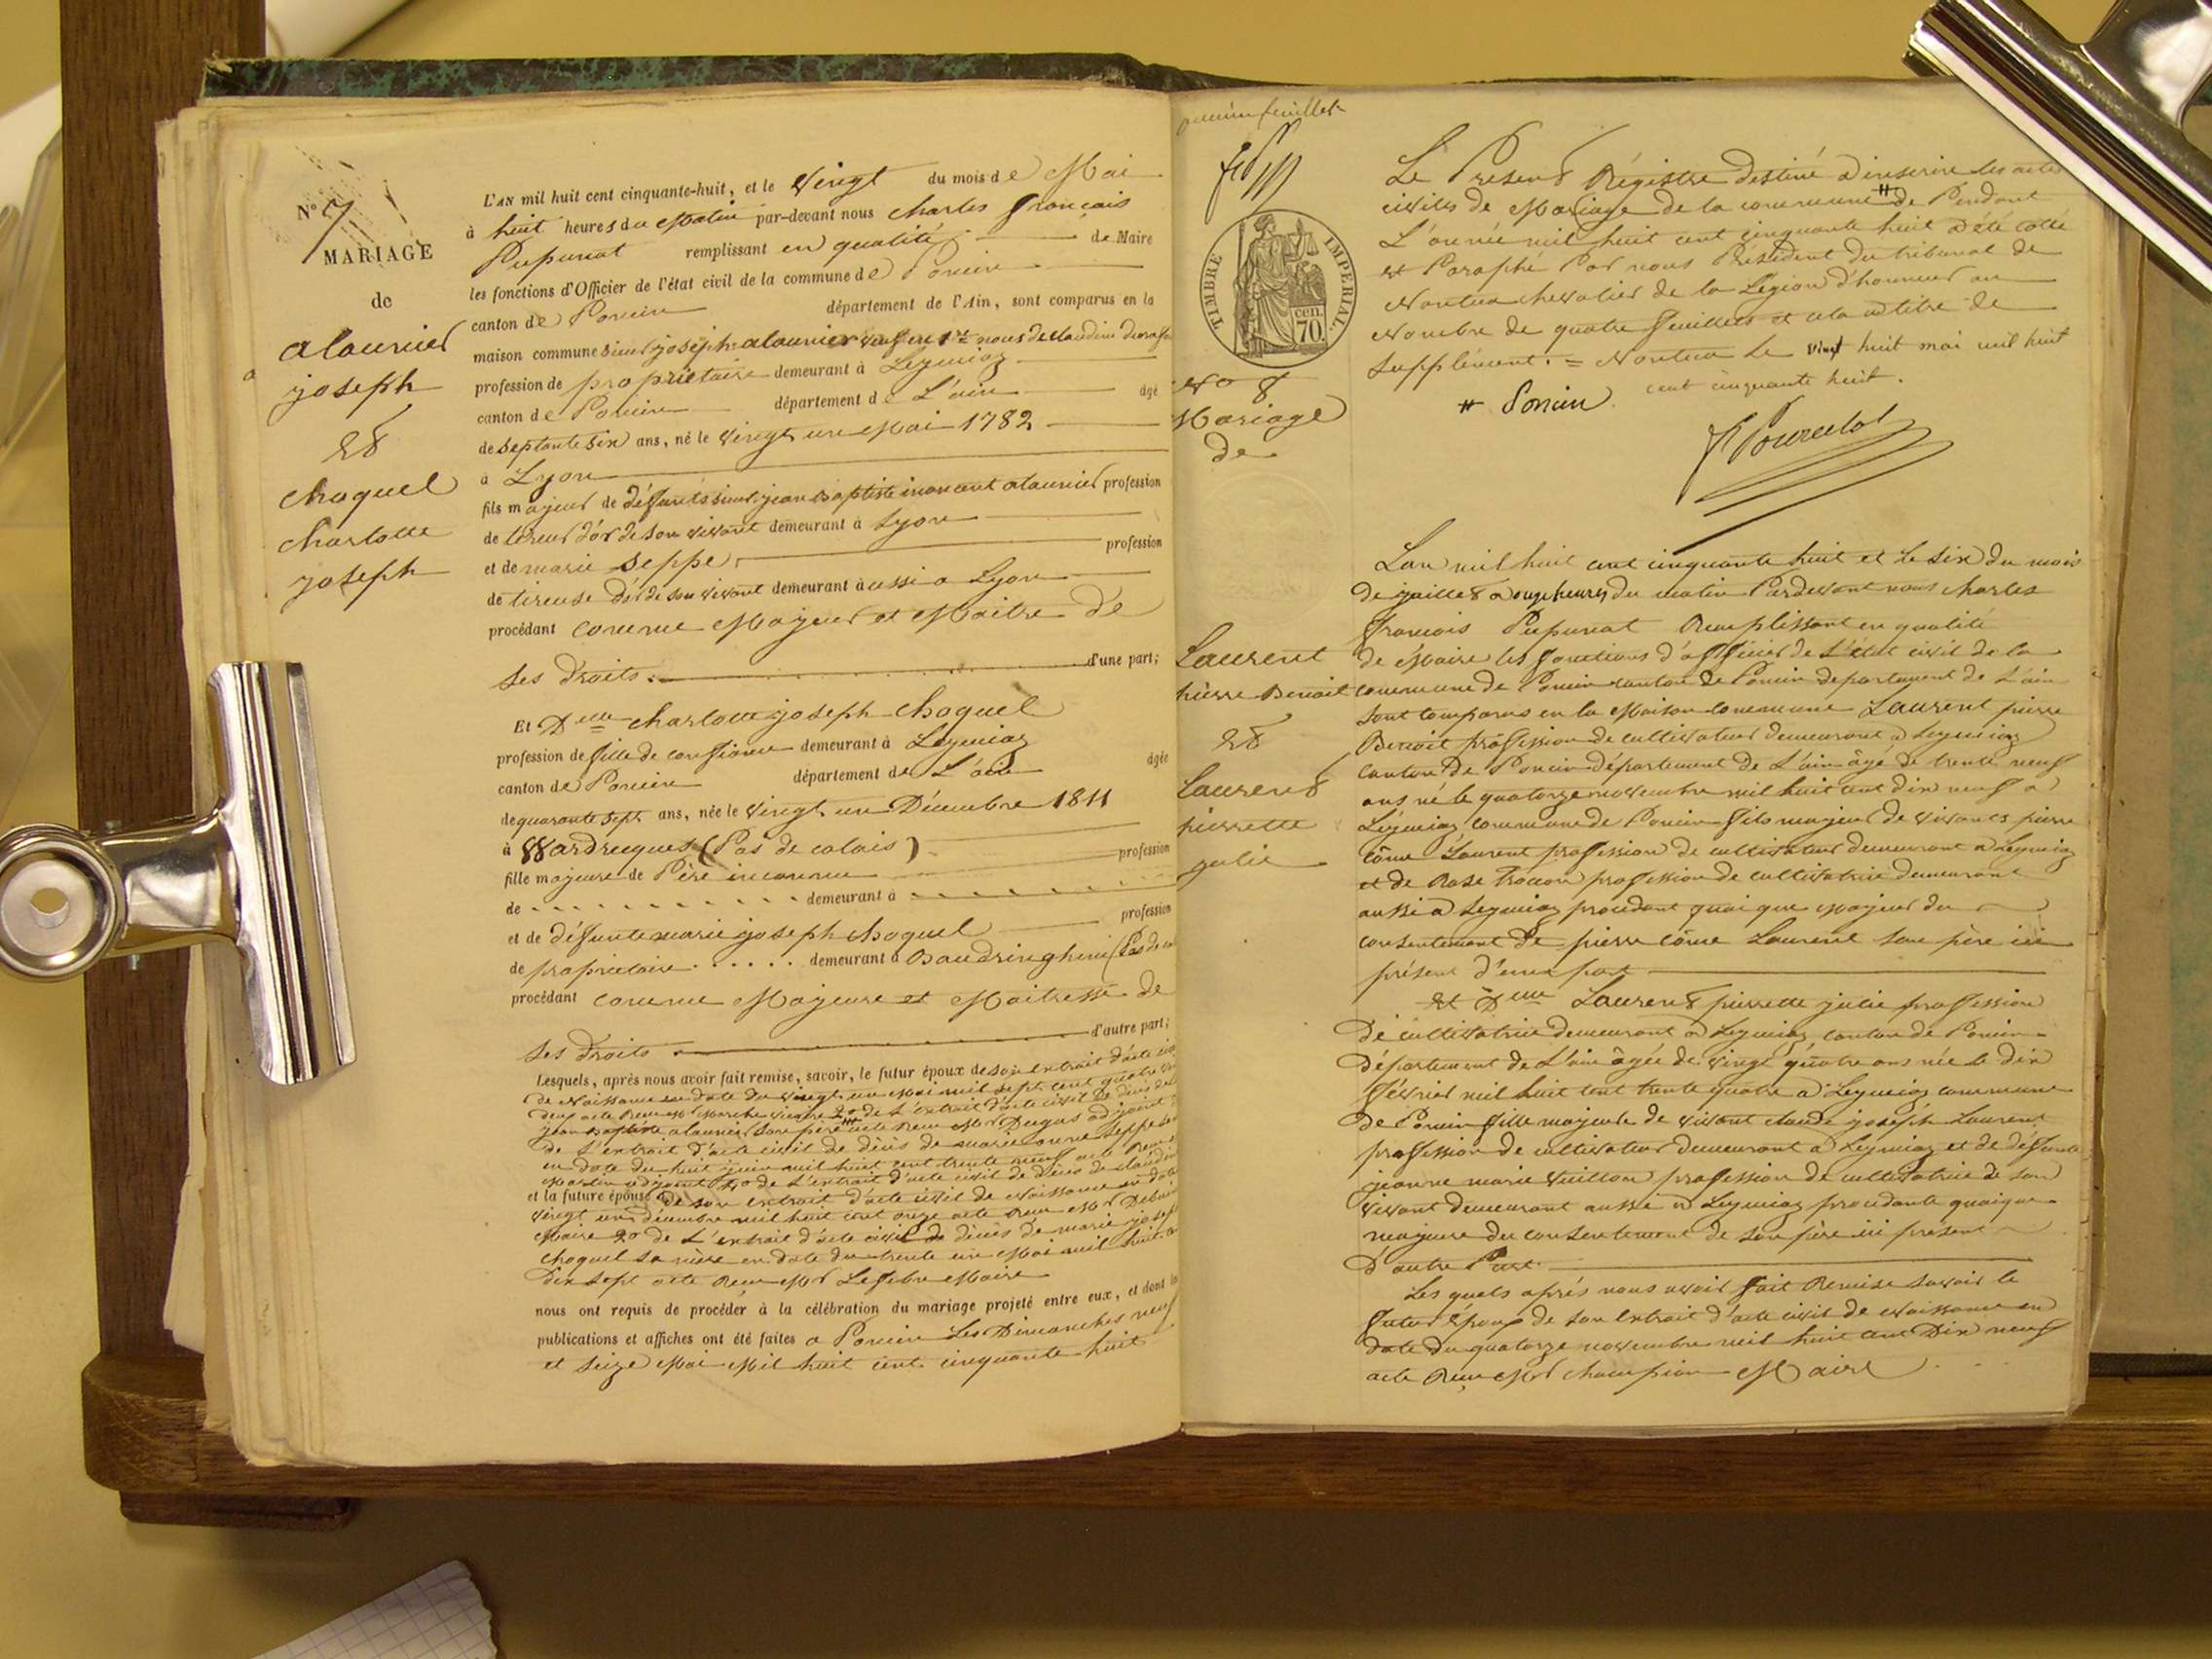 N° 7
MARIAGE
de
alaunier
joseph
et
choquel
charlotte
joseph
L'AN mil huit cent cinquante-huit, et le vingt du mois de Mai
à huit heures du Matin par-devant nous charles françois
Pupunat remplissant en qualité de Maire
les fonctions d'Officier de l'état civil de la commune de Poncin
canton de Poncin département de l'Ain, sont comparus en la
maison commune sieur joseph alaunier veuf en 1res noces de claudine
profession de propriétaire demeurant à Leymiaz
canton de Poncin département de L'ain âgé
de septante six ans, né le vingt un Mai 1782
à Lyon
fils majeur de défunts sieur jean Baptiste inoncent alaunier profession
de tireur d'or de son vivant demeurant à Lyon
et de marie seppe profession
de tireuse d'or de son vivant demeurant aussi a Lyon
procédant comme Majeur et Maitre de
ses droits d'une part;
Et Delle charlotte joseph choquel
profession de fille de confiance demeurant à Leymiaz
canton de Poncin département de L'ain âgée
de quarante sept ans, née le vingt un Décembre 1811
à Wardrecques (Pas de calais)
fille majeure de Père inconnu profession
de demeurant à
et de défunte marie joseph choquel profession
de propriétaire demeurant à Baudringhem (Pas de
procédant comme Majeure et Maitresse de
ses droits d'autre part;
Lesquels, après nous avoir fait remise, savoir, le futur époux de son extrait d'acte
de Naissance en date du vingt un Mai mil sept cent quatre
deux acte Reçu Mr Marche vicaire 2° de L'extrait d'acte civil de décès de
jean Baptiste alaunier son père acte Reçu Mr Dugas adjoint
de L'extrait d'acte civil de décès de marie anne seppe
en date du huit juin mil huit cent trente neuf acte Reçu
Martin adjoint 4° de L'extrait d'acte civil de décès de
et la future épouse de son extrait d'acte civil de Naissance en date
vingt un décembre mil huit cent onze acte Reçu Mr
Maire 2° de L'extrait d'acte civil de décès de marie joseph
choquel sa mère en date du trente un Mai mil huit
Dix sept acte Reçu Mr Lefebre Maire
nous ont requis de procéder à la célébration du mariage projeté entre eux, et dont
publications et affiches ont été faites a Poncin Les Dimanches neuf
et seize Mai Mil huit cent cinquante huit
premier feuillet
TIMBRE IMPERIAL
70 cen.
N° 8
Mariage
de
Laurent
pierre Benoit
et
Laurent
pierrette
julie
Le Present Régistre destiné a inscrire les actes
civiles de Mariage de la commune # de Pendant
L'année mil huit cent cinquante huit a été cotté
et Paraphé Par nous Président du tribunal de
Nantua chevalier de la Légion d'honneur au
Nombre de quatre feuillets et cela a titre de
supplément. = Nantua Le vingt huit mai mil huit
cent cinquante huit.
# Poncin
Lan mil huit cent cinquante huit et Le six du mois
de juillet a onze heures du matin Pardevant nous charles
françois Pupunat Remplissant en qualité
de Maire les fonctions d'officier de L'état civil de la
commune de Poncin canton de Poncin departement de L'ain
sont comparus en la Maison commune Laurent pierre
Benoit profession de cultivateur demeurant a Leymiaz
canton de Poncin département de L'ain âgé de trente neuf
ans né le quatorze novembre mil huit cent dix neuf a
Leymiaz commune de Poncin fils majeur de vivants pierre
côme Laurent profession de cultivateur demeurant a Leymiaz
et de Rose profession de cultivatrice demeurant
aussi a Leymiaz procédant quoi que Majeur du
consentement de pierre côme Laurent son père ici
présent d'une part
et Delle Laurent pierrette julie profession
De cultivatrice demeurant a Leymiaz canton de Poncin
Département de L'ain âgée de vingt quatre ans née le dix
février mil huit cent trente quatre a Leymiaz commune
de Poncin fille majeure de vivant claude joseph Laurent
profession de cultivateur demeurant a Leymiaz et de défunte
jeanne marie Vuillon profession de cultivatrice de son
vivant demeurant aussi a Leymiaz procédante quoique
majeure du consentement de son père ici présent
d'autre Part
Les quels aprés nous avoir fait Remise savoir le
futur époux de son extrait d'acte civil de Naissance en
date du quatorze novembre mil huit cent Dix neuf
acte Reçu Mr champion Maire